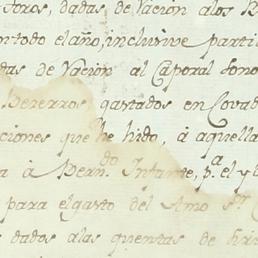 toros, dadas de Vacion alos
todo el año, inclusive parti
das de Vacion al Caporal
Bezerros, gastados en
ciones que he hido, à aquella
à Bern.do Infante, p.a el
para el gasto del Amo Sr.
dados alas quentas de